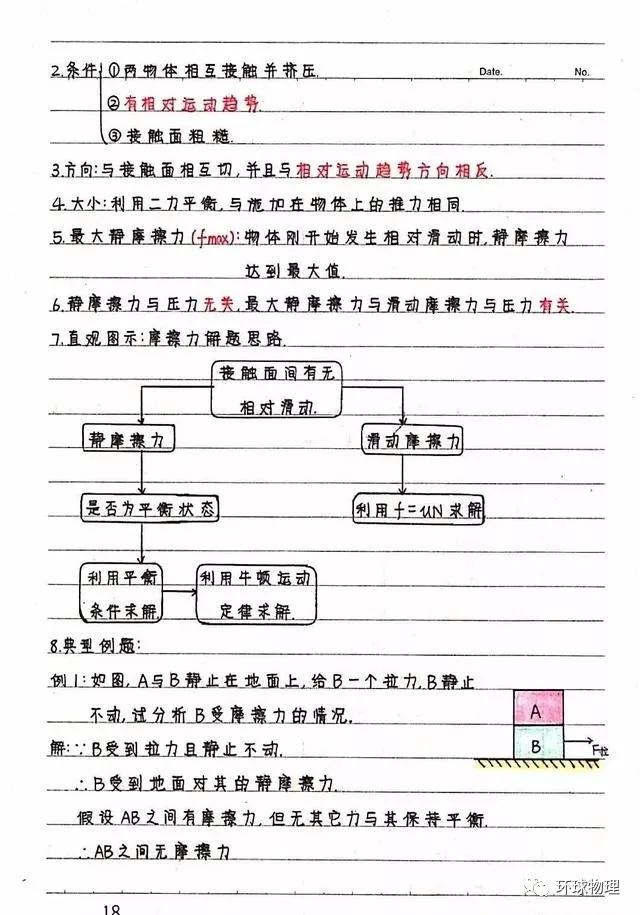 2.条件 ①两物体相互接触并挤压.
Date. No.
②有相对运动趋势.
③接触面粗糙.
3.方向:与接触面相互切,并且与相对运动趋势方向相反.
4.大小:利用二力平衡,与施加在物体上的推力相同.
5.最大静摩擦力(fmax):物体刚开始发生相对滑动时,静摩擦力
达到最大值.
6.静摩擦力与压力无关,最大静摩擦力与滑动摩擦力与压力有关.
7.直观图示:摩擦力解题思路.
接触面间有无
相对滑动.
静摩擦力
滑动摩擦力
是否为平衡状态
利用f=uN求解
利用平衡
条件求解
利用牛顿运动
定律求解.
8.典型例题:
例1:如图,A与B静止在地面上,给B一个拉力,B静止
不动,试分析B受摩擦力的情况.
A
B
F拉
解:∵B受到拉力且静止不动.
∴B受到地面对其的静摩擦力.
假设AB之间有摩擦力,但无其它力与其保持平衡.
∴AB之间无摩擦力
环球物理
18